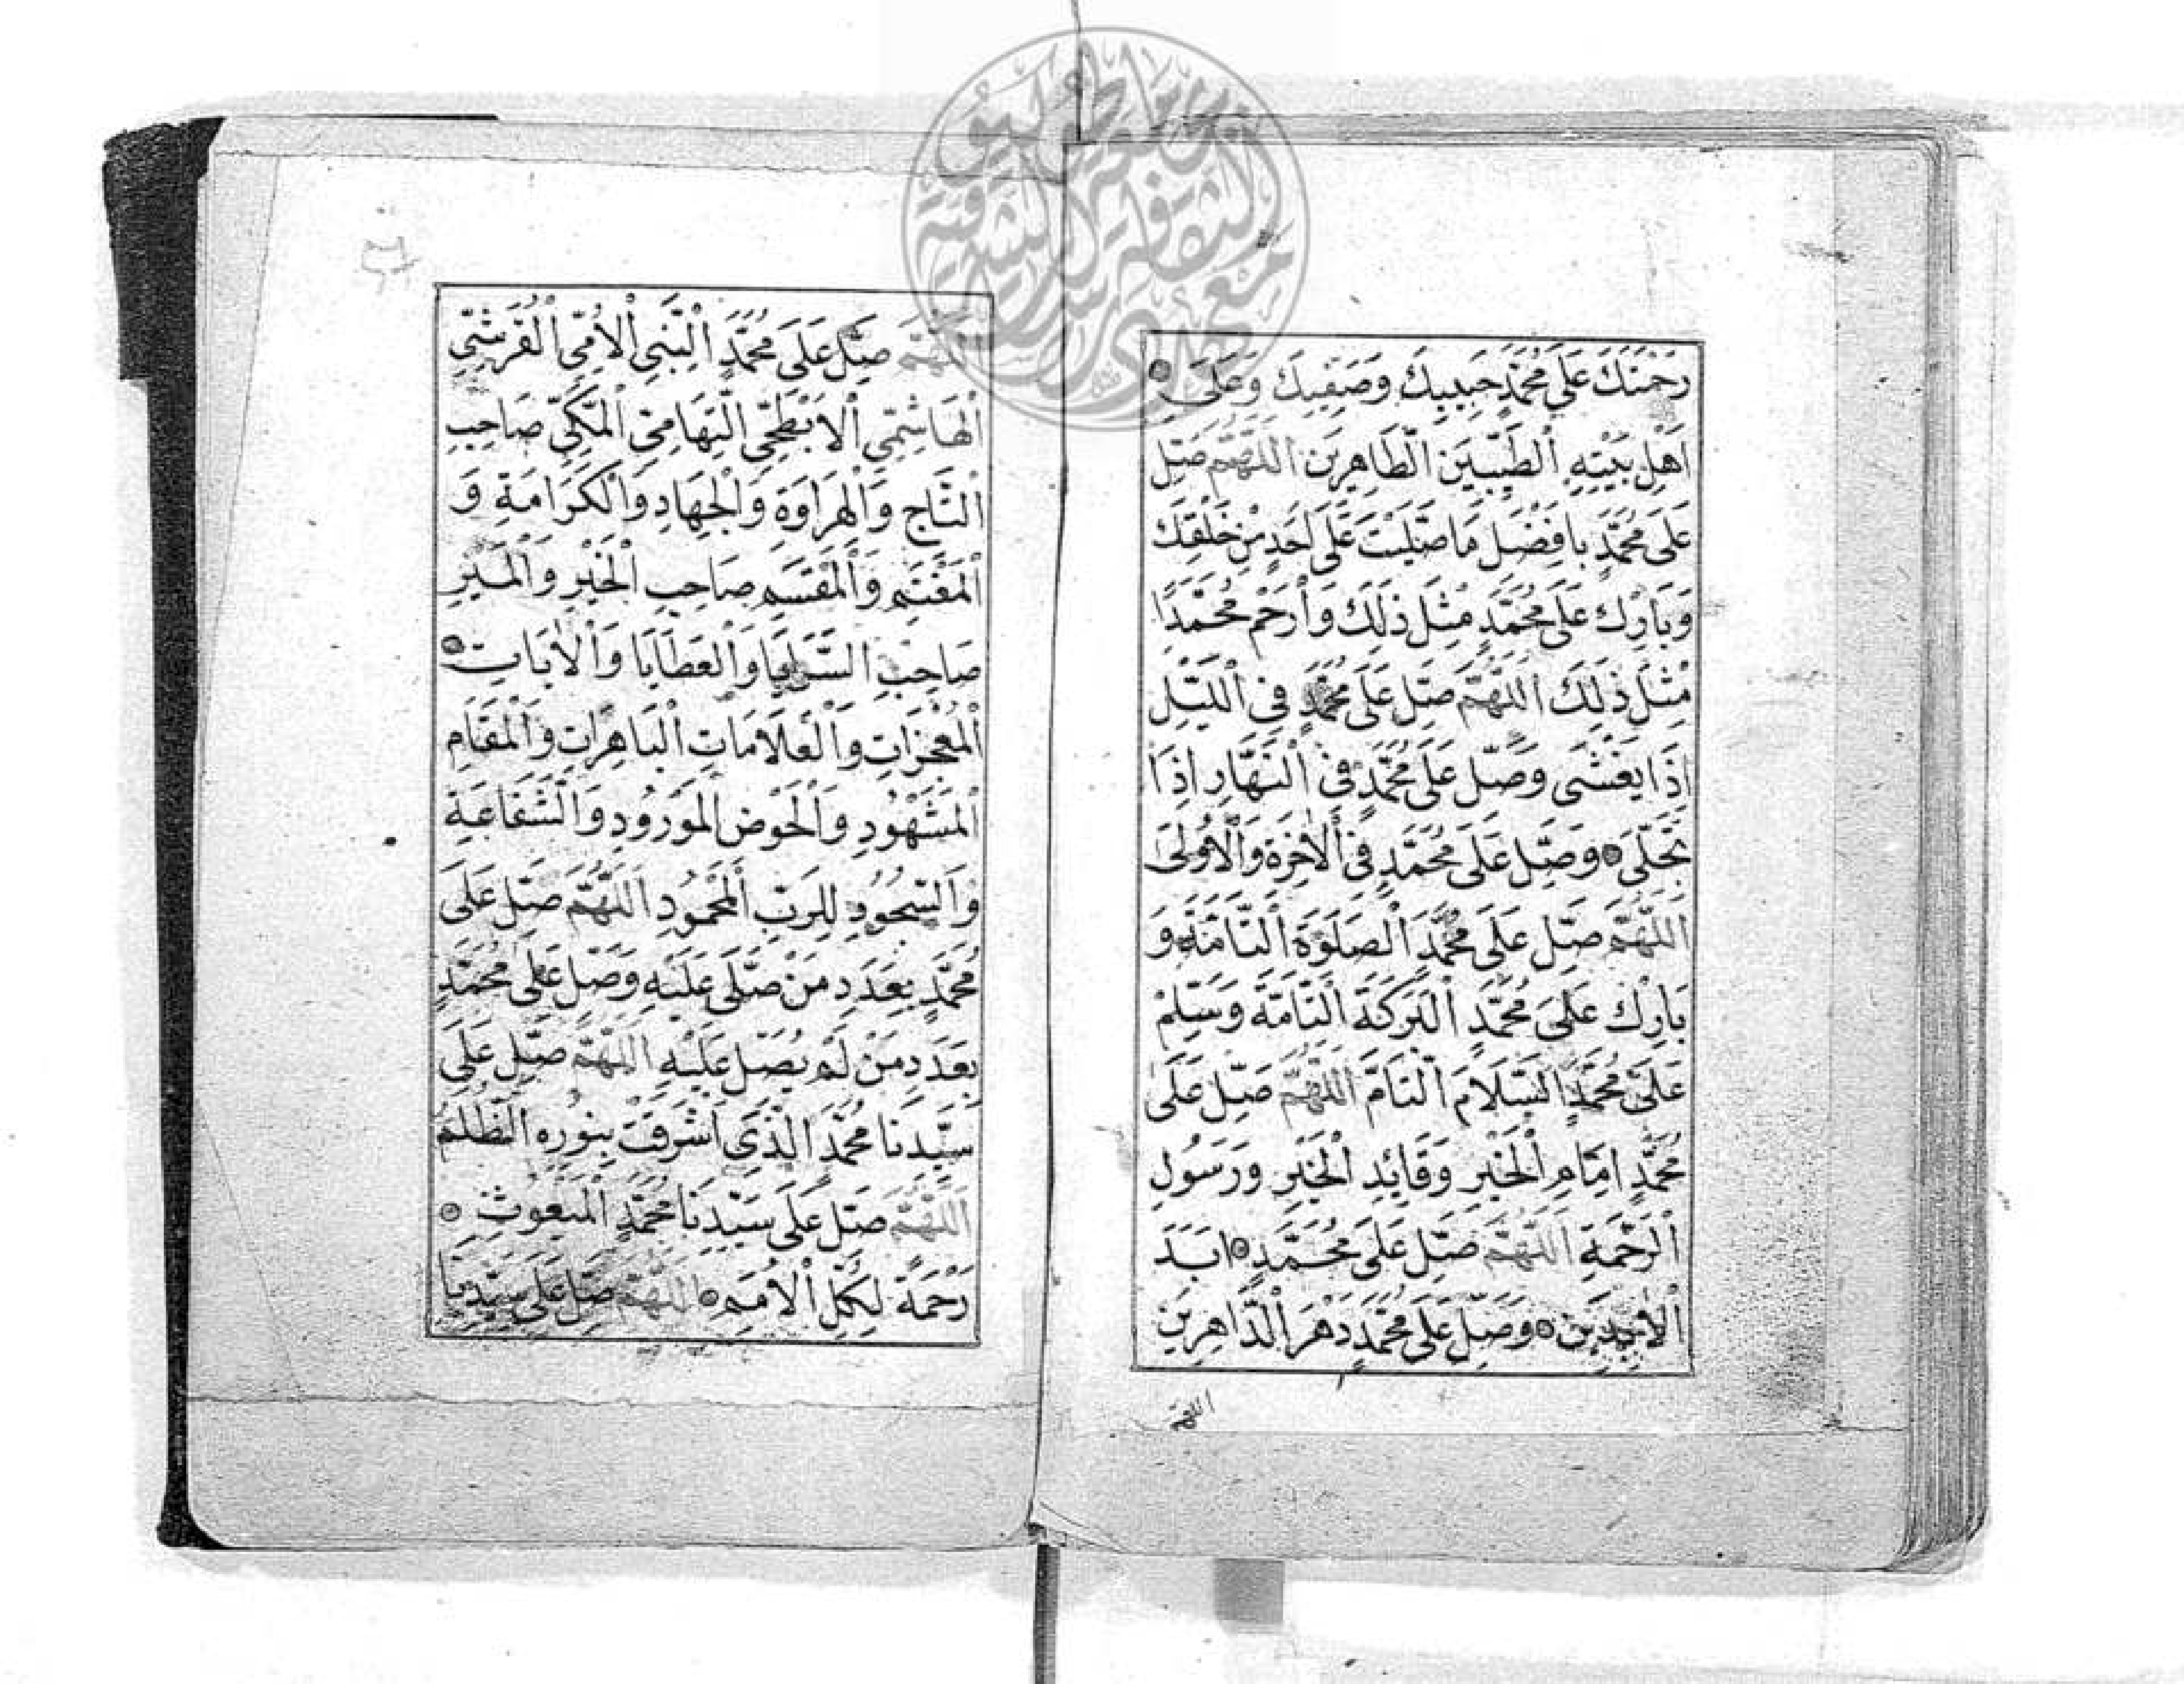 رَحْمَتَكَ عَلَى مُحَمَّدٍ حَبِيبِكَ وَصَفِيِّكَ وَعَلَى
اَهْلِ بَيْتِهِ الطَّيِّبِينَ الطَّاهِرِينَ اَللّٰهُمَّ صَلِّ
عَلَى مُحَمَّدٍ بِاَفْضَلِ مَا صَلَّيْتَ عَلَى اَحَدٍ مِنْ خَلْقِكَ
وَبَارِكْ عَلَى مُحَمَّدٍ مِثْلَ ذٰلِكَ وَارْحَمْ مُحَمَّدًا
مِثْلَ ذٰلِكَ اَللّٰهُمَّ صَلِّ عَلَى مُحَمَّدٍ فِي الَّيْلِ
اِذَا يَغْشَى وَصَلِّ عَلَى مُحَمَّدٍ فِي النَّهَارِ اِذَا
تَجَلَّى وَصَلِّ عَلَى مُحَمَّدٍ فِي الْاٰخِرَةِ وَالْاُولَى
اَللّٰهُمَّ صَلِّ عَلَى مُحَمَّدٍ الصَّلٰوةَ التَّامَّةَ وَ
بَارِكْ عَلَى مُحَمَّدٍ الْبَرَكَةَ التَّامَّةَ وَسَلِّمْ
عَلَى مُحَمَّدٍ السَّلَامَ التَّامَّ اَللّٰهُمَّ صَلِّ عَلَى
مُحَمَّدٍ اِمَامِ الْخَيْرِ وَقَائِدِ الْخَيْرِ وَرَسُولِ
الرَّحْمَةِ اَللّٰهُمَّ صَلِّ عَلَى مُحَمَّدٍ اَبَدَ
الْاٰبِدِينَ وَصَلِّ عَلَى مُحَمَّدٍ دَهْرَ الدَّاهِرِينَ
اللهم
اَللّٰهُمَّ صَلِّ عَلَى مُحَمَّدٍ النَّبِيِّ الْاُمِّيِّ الْقُرَشِيِّ
الْهَاشِمِيِّ الْاَبْطَحِيِّ التِّهَامِيِّ الْمَكِّيِّ صَاحِبِ
التَّاجِ وَالْهِرَاوَةِ وَالْجِهَادِ وَالْكَرَامَةِ وَ
الْمَغْنَمِ وَالْمَقْسَمِ صَاحِبِ الْخَيْرِ وَالْمَيْرِ
صَاحِبِ السَّرَايَا وَالْعَطَايَا وَالْاٰيَاتِ
الْمُعْجِزَاتِ وَالْعَلَامَاتِ الْبَاهِرَاتِ وَالْمَقَامِ
الْمَشْهُودِ وَالْحَوْضِ الْمَوْرُودِ وَالشَّفَاعَةِ
وَالسُّجُودِ لِلرَّبِّ الْمَحْمُودِ اَللّٰهُمَّ صَلِّ عَلَى
مُحَمَّدٍ بِعَدَدِ مَنْ صَلَّى عَلَيْهِ وَصَلِّ عَلَى مُحَمَّدٍ
بِعَدَدِ مَنْ لَمْ يُصَلِّ عَلَيْهِ اَللّٰهُمَّ صَلِّ عَلَى
سَيِّدِنَا مُحَمَّدٍ الَّذِى اَشْرَقَتْ بِنُورِهِ الظُّلَمُ
اَللّٰهُمَّ صَلِّ عَلَى سَيِّدِنَا مُحَمَّدٍ الْمَبْعُوثِ
رَحْمَةً لِكُلِّ الْاُمَمِ اَللّٰهُمَّ صَلِّ عَلَى سَيِّدِنَا